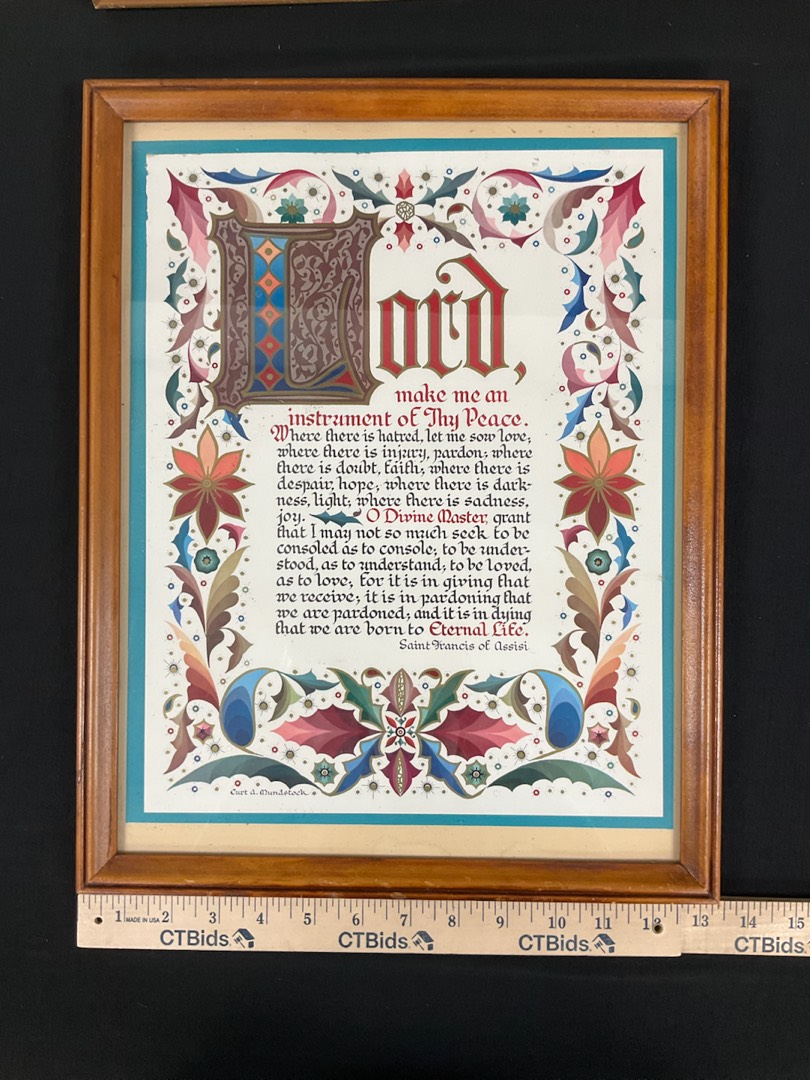 Lord,
make me an
instrument of Thy Peace.
Where there is hatred, let me sow love;
where there is injury, pardon; where
there is doubt, faith; where there is
despair, hope; where there is dark-
ness, light; where there is sadness,
joy. O Divine Master, grant
that I may not so much seek to be
consoled as to console; to be under-
stood, as to understand; to be loved,
as to love; for it is in giving that
we receive; it is in pardoning that
we are pardoned; and it is in dying
that we are born to Eternal Life.
Saint Francis of Assisi
Curt A. Mundstock
1 MADE IN USA 2 3 4 5 6 7 8 9 10 11 12 13 14 15
CTBids CTBids CTBids CTBids